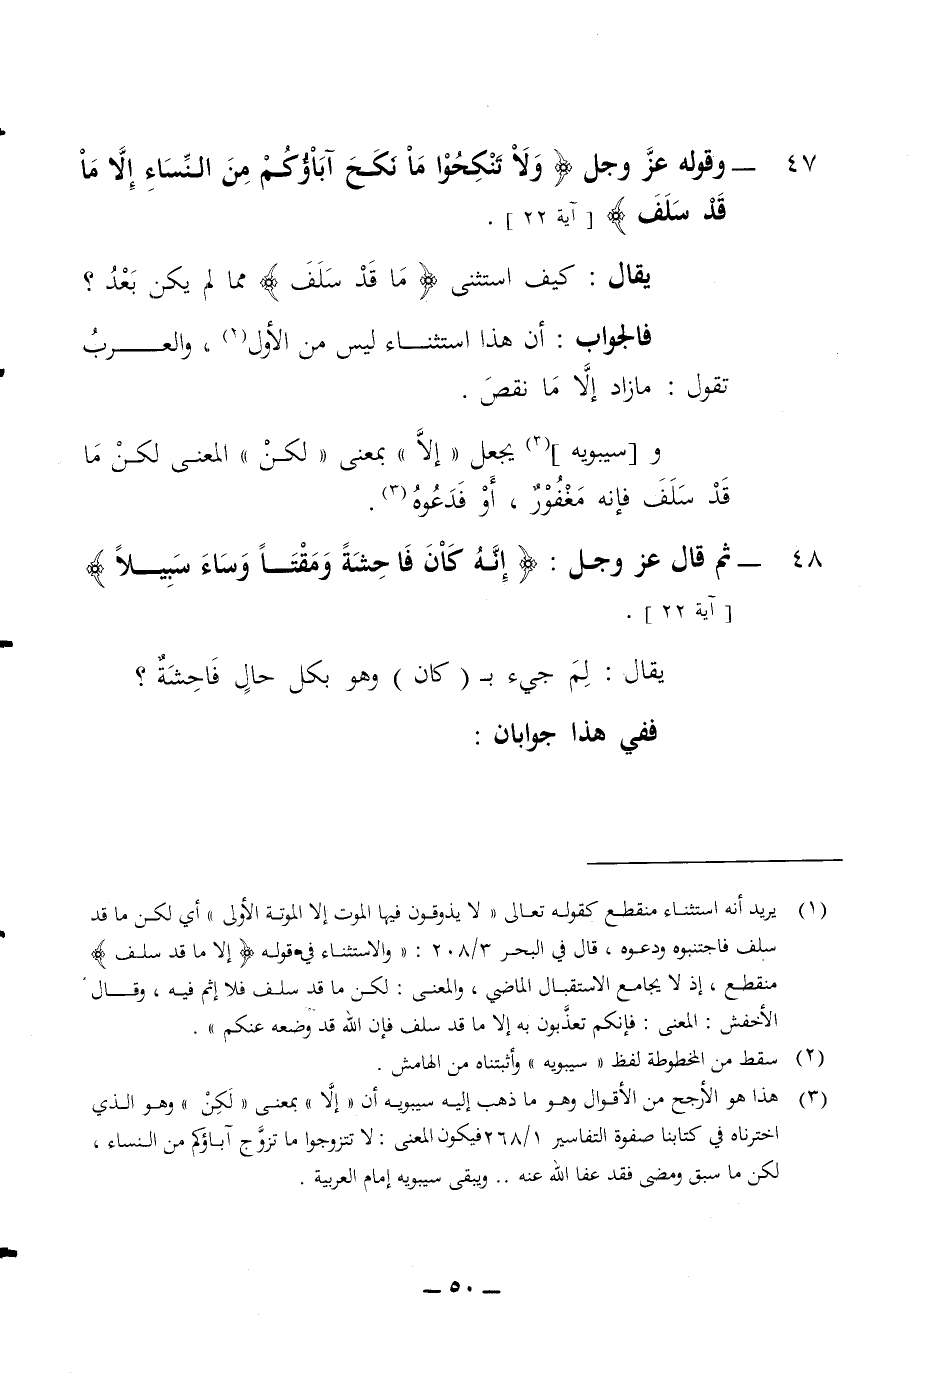 ٤٧ ــ وقوله عزَّ وجل ﴿ وَلَاْ تَنْكِحُوْا مَاْ نَكَحَ آبَاْؤُكُمْ مِنَ النِّسَاءِ إِلَّا مَاْ
قَدْ سَلَفَ ﴾ [ آية ٢٢ ] .
يقال : كيف استثنى ﴿ مَا قَدْ سَلَفَ ﴾ مما لم يكن بَعْدُ ؟
فالجواب : أن هذا استثناء ليس من الأول(١) ، والعربُ
تقول : مازاد إلَّا مَا نقصَ .
و [سيبويه ](٢) يجعل « إلاَّ » بمعنى « لكنْ » المعنى لكنْ مَا
قَدْ سَلَفَ فإنه مَغْفُورٌ ، أَوْ فَدَعُوهُ(٣) .
٤٨ ــ ثم قال عز وجل : ﴿ إِنَّهُ كَاْنَ فَاحِشَةً وَمَقْتَاً وَسَاءَ سَبِيلاً ﴾
[ آية ٢٢ ] .
يقال : لِمَ جيء بـ ( كان ) وهو بكل حالٍ فَاحِشَةٌ ؟
ففي هذا جوابان :
(١) يريد أنه استثناء منقطع كقوله تعالى « لا يذوقون فيها الموت إلا الموتة الأولى » أي لكن ما قد
سلف فاجتنبوه ودعوه ، قال في البحر ٢٠٨/٣ : « والاستثناء في قوله ﴿ إلا ما قد سلف ﴾
منقطع ، إذ لا يجامع الاستقبال الماضي ، والمعنى : لكن ما قد سلف فلا إثم فيه ، وقال
الأخفش : المعنى : فإنكم تعذَّبون به إلا ما قد سلف فإن الله قد وضعه عنكم » .
(٢) سقط من المخطوطة لفظ « سيبويه » وأثبتناه من الهامش .
(٣) هذا هو الأرجح من الأقوال وهو ما ذهب إليه سيبويه أن « إلَّا » بمعنى « لَكِنْ » وهو الذي
اخترناه في كتابنا صفوة التفاسير ٢٦٨/١ فيكون المعنى : لا تتزوجوا ما تزوَّج آباؤكم من النساء ،
لكن ما سبق ومضى فقد عفا الله عنه .. ويبقى سيبويه إمام العربية .
ــ ٥٠ ــ